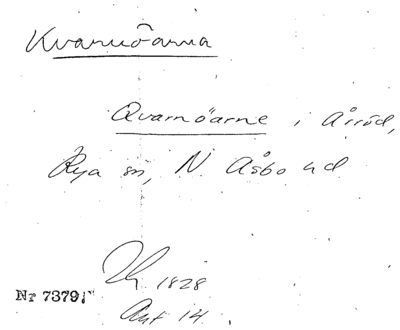 Kvarnöarna
Qvarnöarne i Årröd,
Rya sn, N. Åsbo hd
1828
Akt 14
Nr 7379: